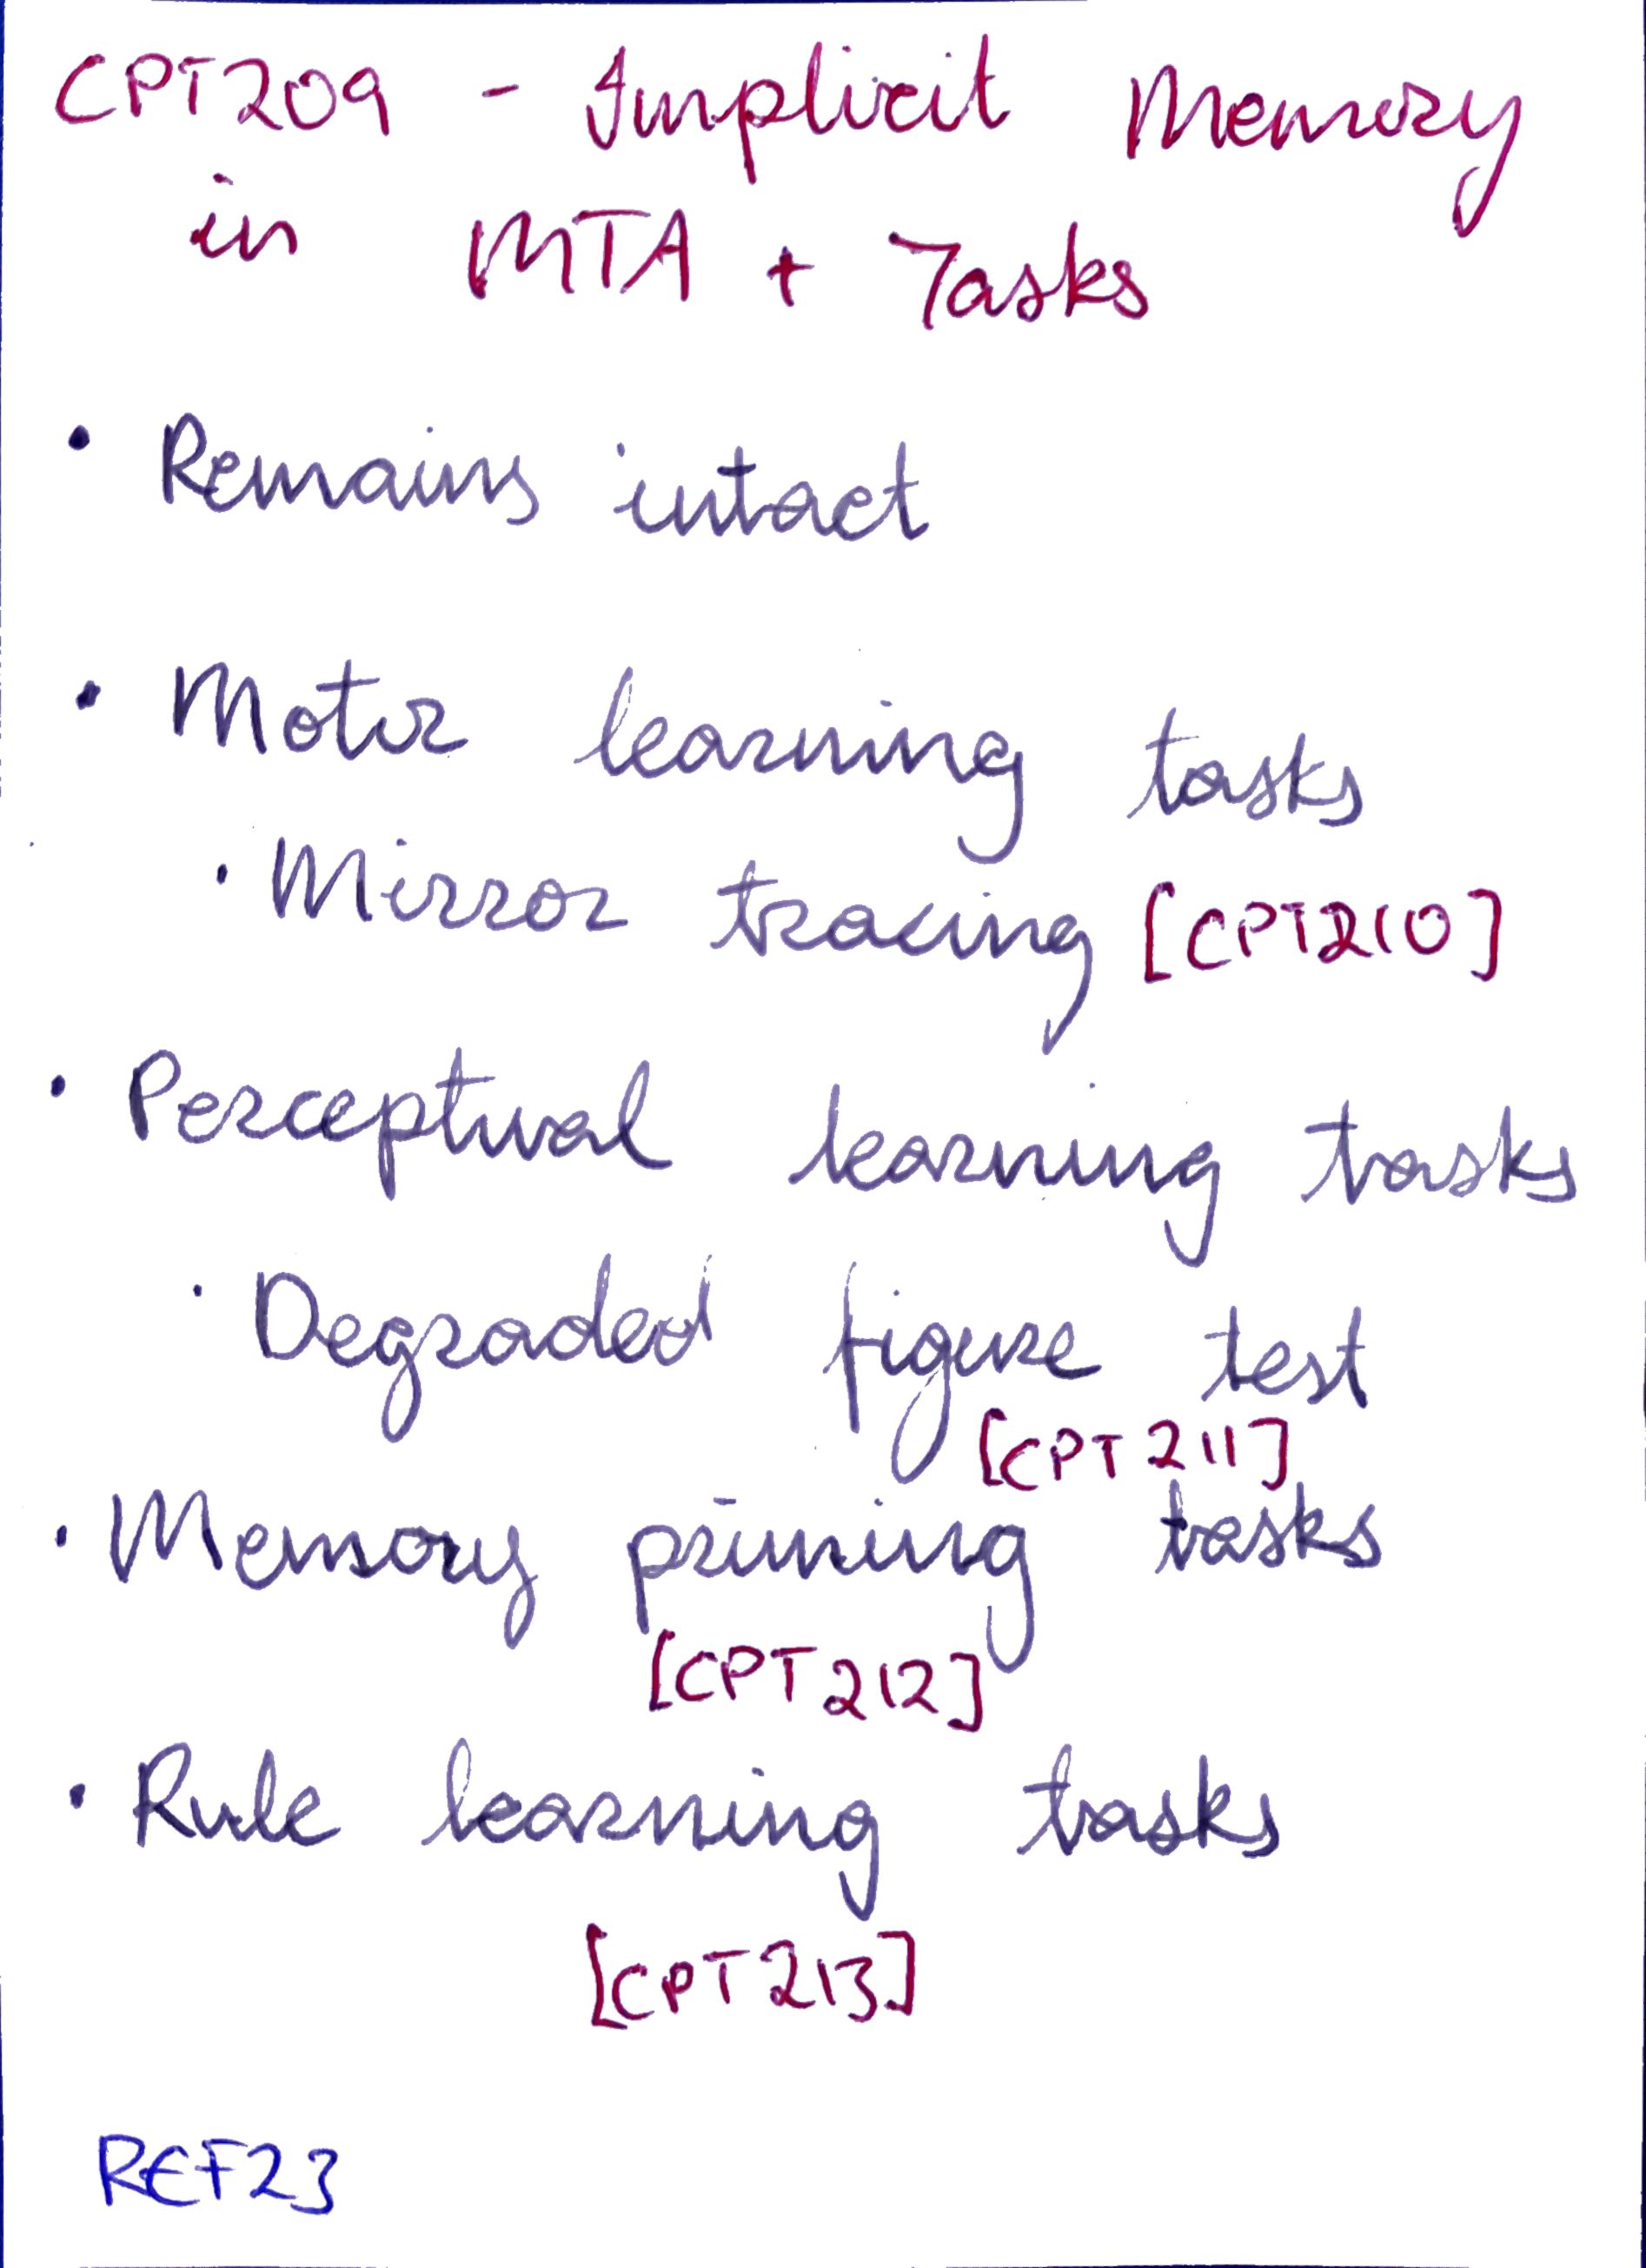 CPT209 - Implicit Memory
in MTA + Tasks
• Remains intact
• Motor learning tasks
• Mirror tracing [CPT210]
• Perceptual learning tasks
• Degraded figure test
[CPT211]
• Memory priming tasks
[CPT212]
• Rule learning tasks
[CPT213]
REF23